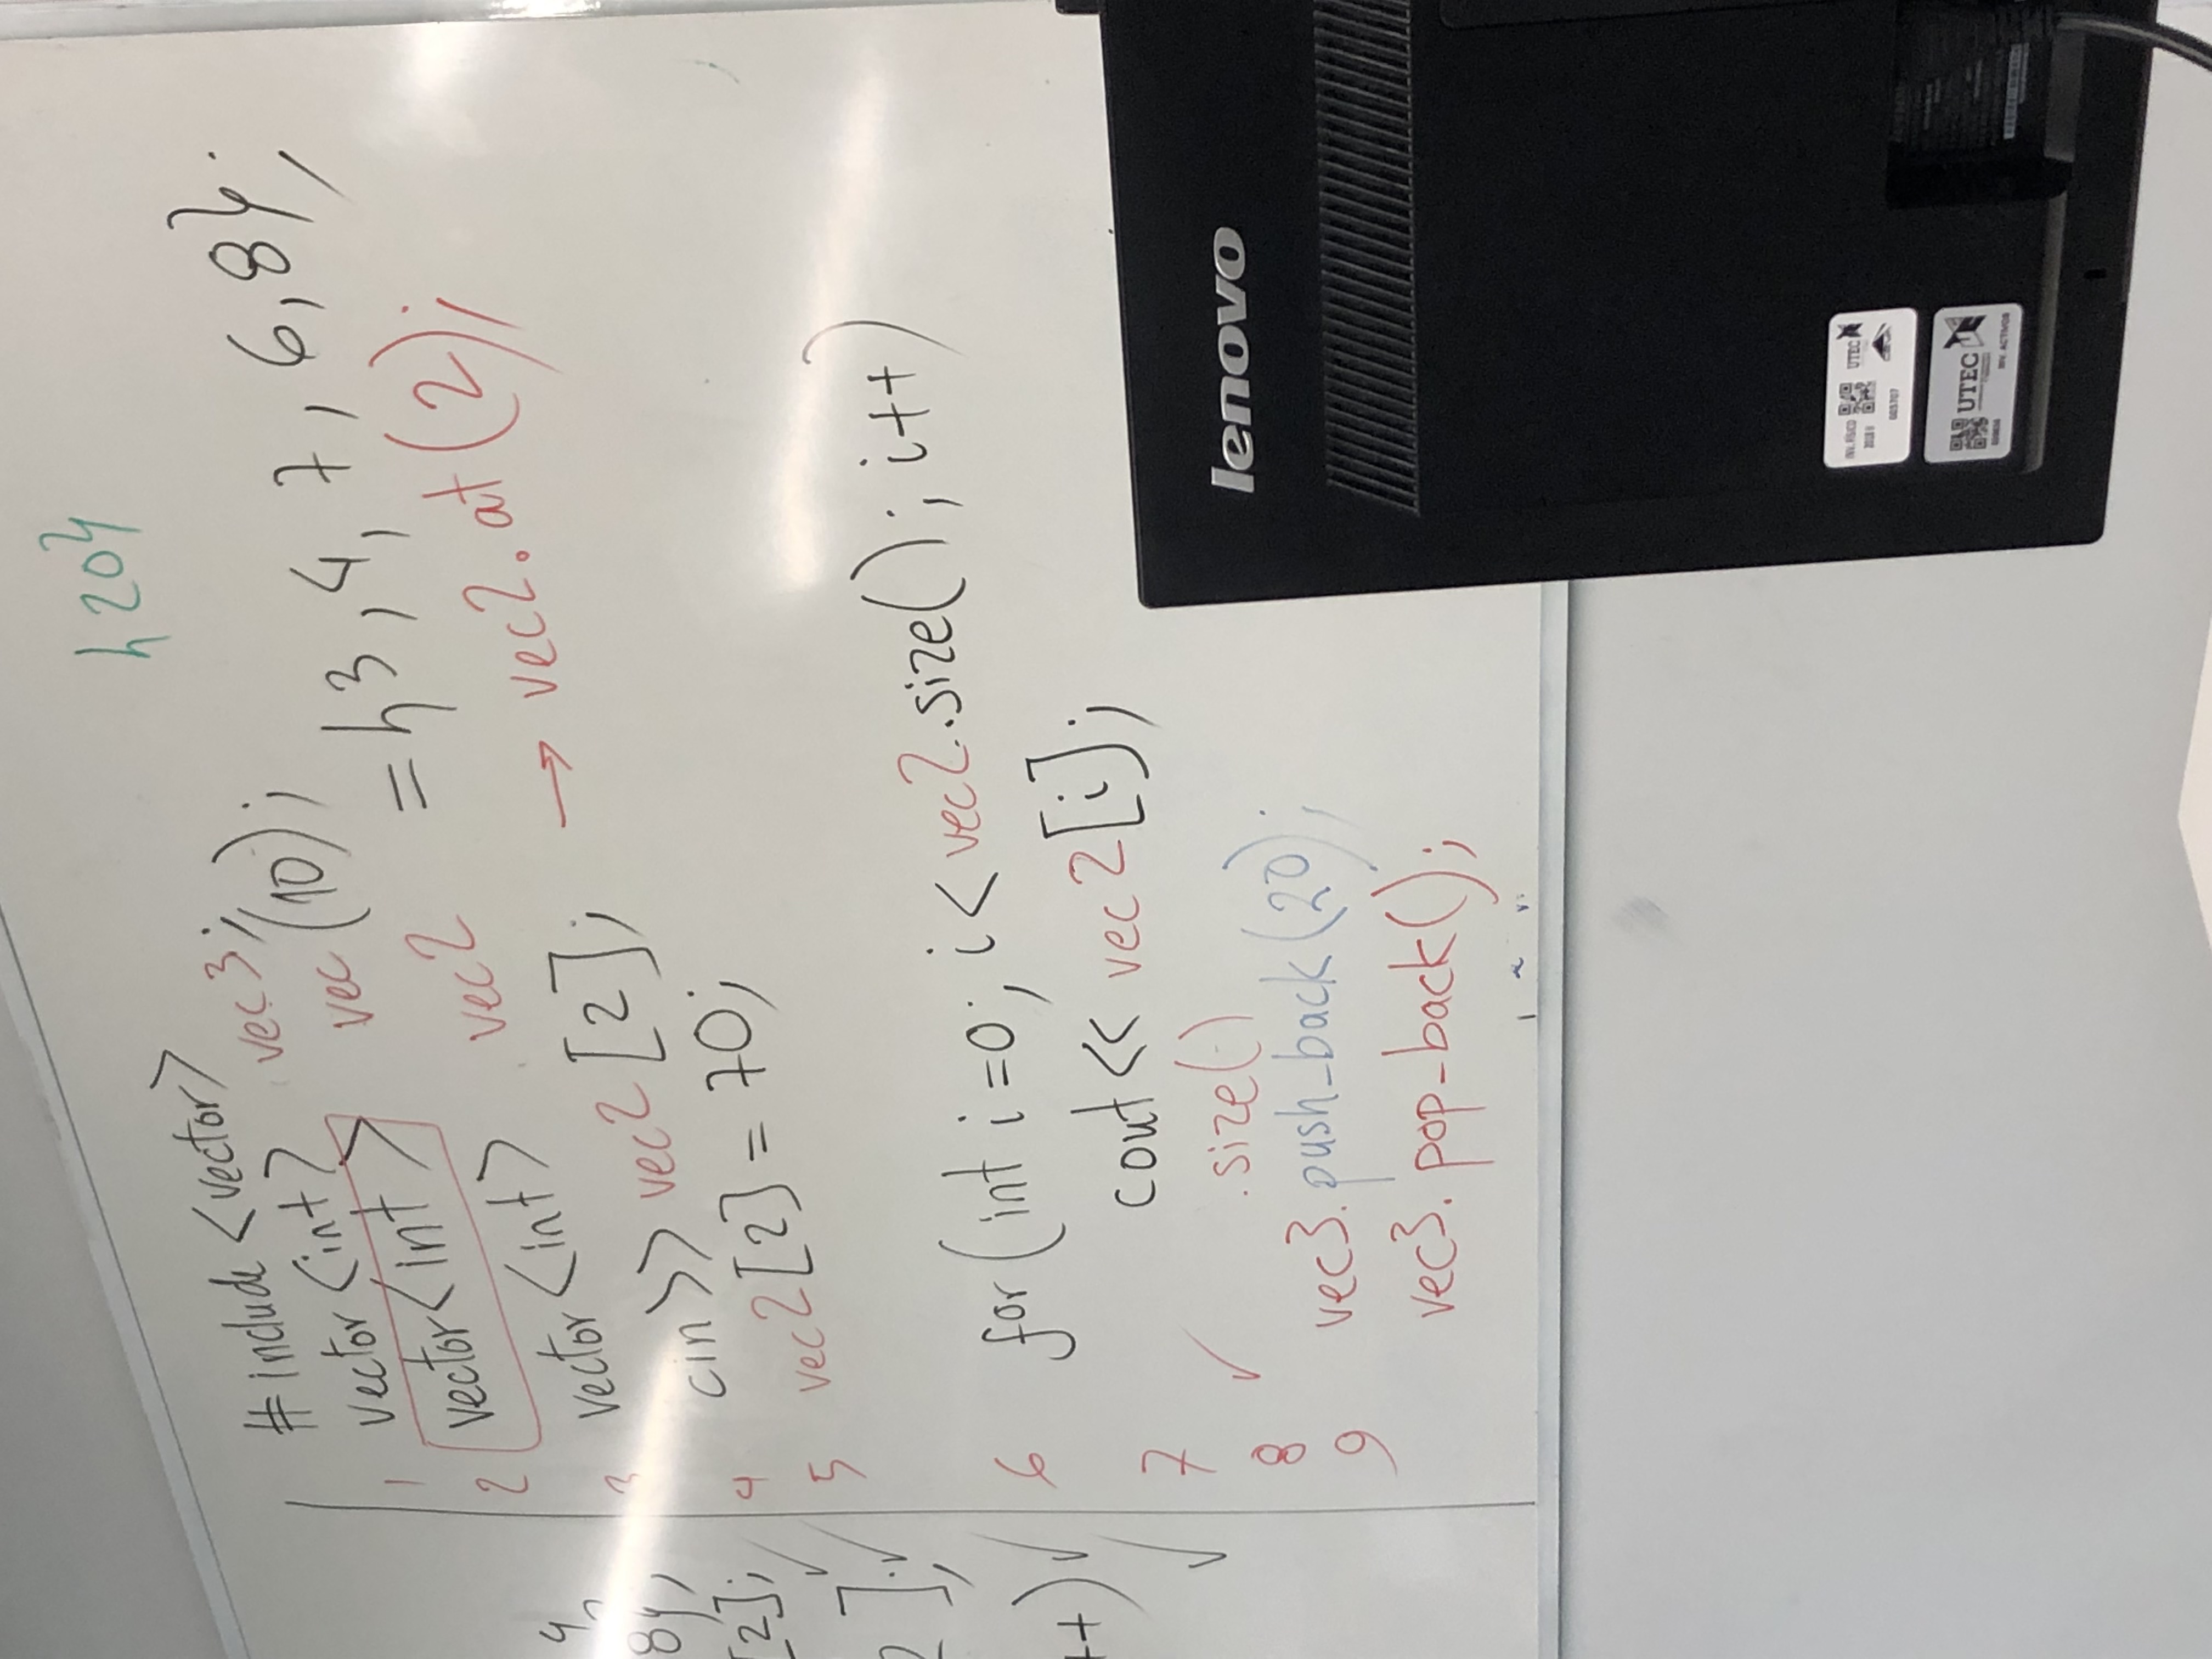 {20}
#include <vector>
1 vector <int> vec3;
2 vector <int> vec (10);
3 vector <int> vec2 = {3, 4, 7, 6, 8};
4 cin >> vec2 [2]; → vec2.at(2);
5 vec2[2] = 70;
6 for (int i=0; i < vec2.size(); i++)
cout << vec2[i];
7 .size()
8 vec3.push_back(20);
9 vec3.pop_back();
4
8};
[2];
2];
++)
lenovo
INV. FÍSICO
2018 II
UTEC
003707
UTEC
INV. ACTIVOS